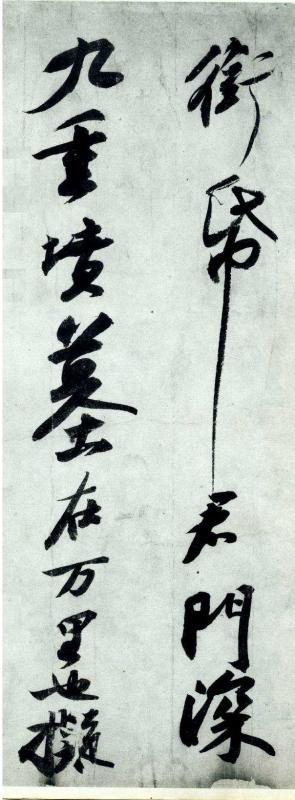 衔帋君門深
九重墳墓在万里也擬